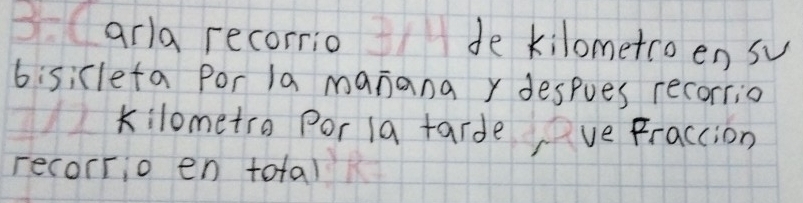 3-Carla recorrio 3/4 de kilometro en su
bisicleta Por la mañana y despues recorrio
1/2 Kilometro Por la tarde, ¿Que Fraccion
recorrio en total? R=